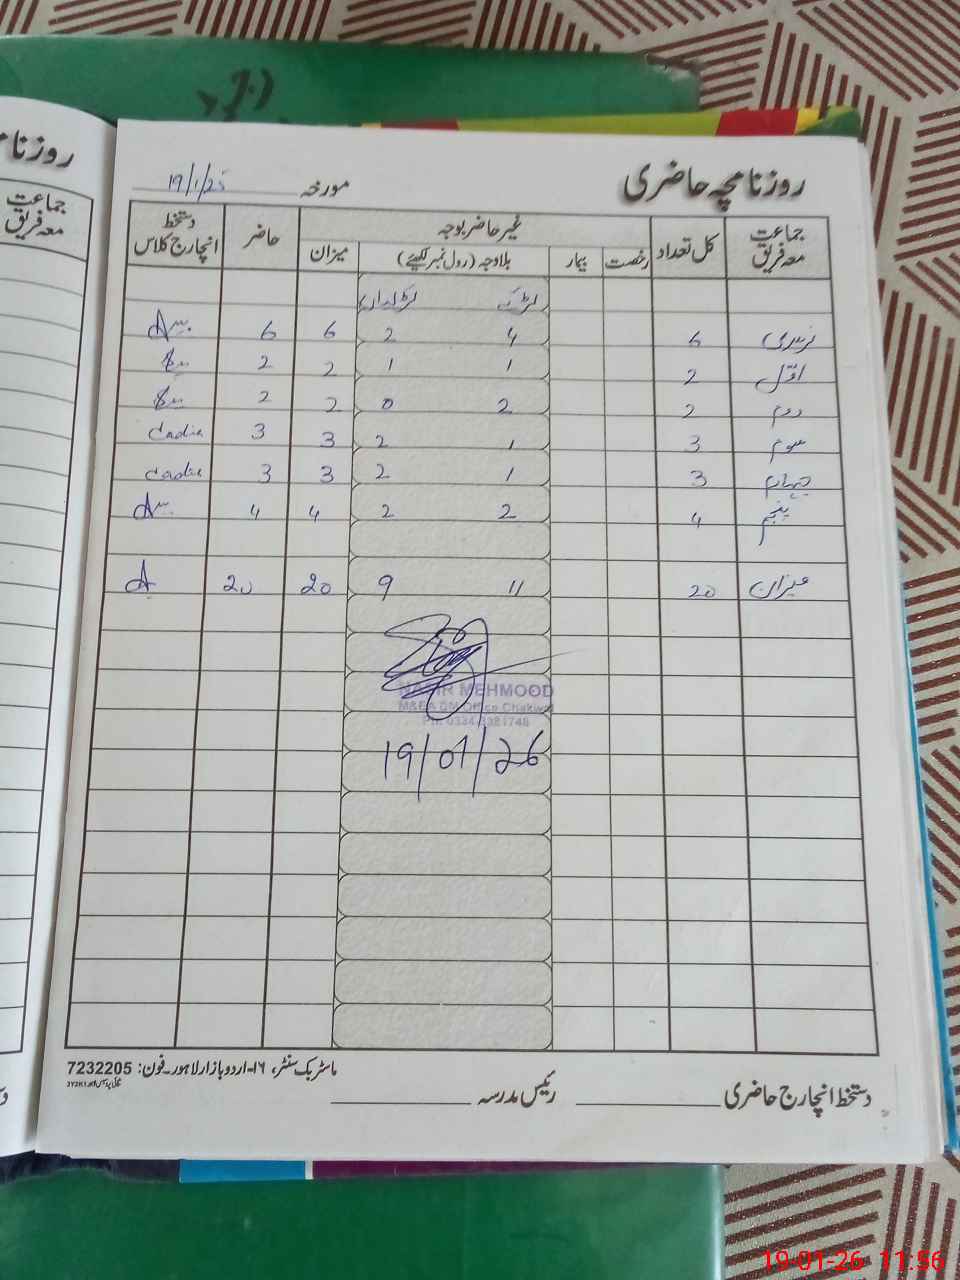 روزنا
جماعت
معہ فریق
روزنامچہ حاضری
مورخہ 19/1/25
جماعت معہ فریق کل تعداد غیر حاضر بوجہ حاضر دستخط انچارج کلاس
رخصت بیمار بلاوجہ (رول نمبر لکھیئے) میزان
لڑکے لڑکیاں
نرسری 6 4 2 6 6
اوّل 2 1 1 2 2
دوم 2 2 0 2 2
سوم 3 1 2 3 3 Sadia
چہارم 3 1 2 3 3 Sadia
پنجم 4 2 2 4 4
میزان 20 11 9 20 20
NASIR MEHMOOD
M&EA DM Office Chakwal
19/01/26
ماسٹر بک سنٹر، ۱۶-اردو بازار لاہور۔ فون: 7232205
دستخط انچارج حاضری رئیس مدرسہ
19-01-26 11:56